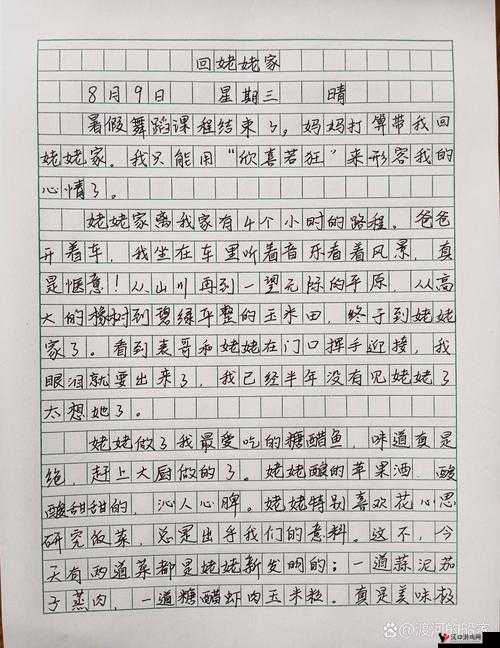 回姥姥家
8月9日 星期三 晴
暑假舞蹈课程结束了,妈妈打算带我回
姥姥家。我只能用“欣喜若狂”来形容我的
心情了。
姥姥家离我家有4个小时的路程。爸爸
开着车,我坐在车里听着音乐看着风景,真
是惬意!从山川再到一望无际的平原,从高
大的橡树到碧绿平整的玉米田,终于到姥姥
家了。看到表哥和姥姥在门口挥手迎接,我
眼泪就要出来了,我已经半年没有见姥姥了
太想她了。
姥姥做了我最爱吃的糖醋鱼,味道真是
绝,赶上大厨做的了。姥姥酿的苹果酒,酸
酸甜甜的,沁人心脾。姥姥特别喜欢花心思
研究饭菜,总是出乎我们的意料。这不,今
天有两道菜都是姥姥新发明的;一道蒜泥茄
子蒸肉,一道糖醋虾肉玉米粒。真是美味极
汉口游戏网